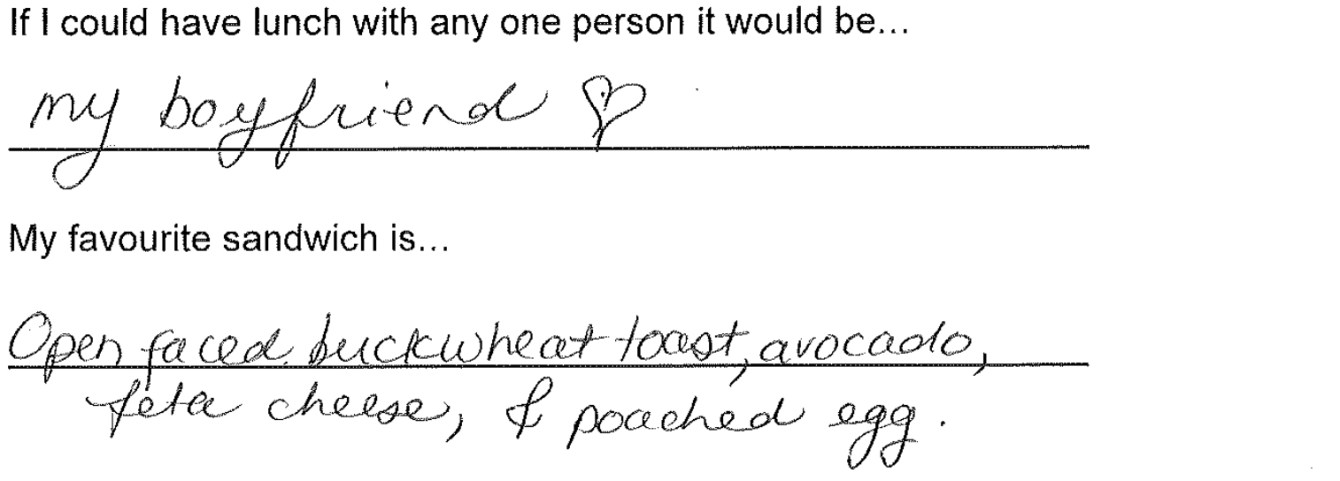 If I could have lunch with any one person it would be...
my boyfriend ♡
My favourite sandwich is...
Open faced buckwheat toast, avocado,
feta cheese, & poached egg.